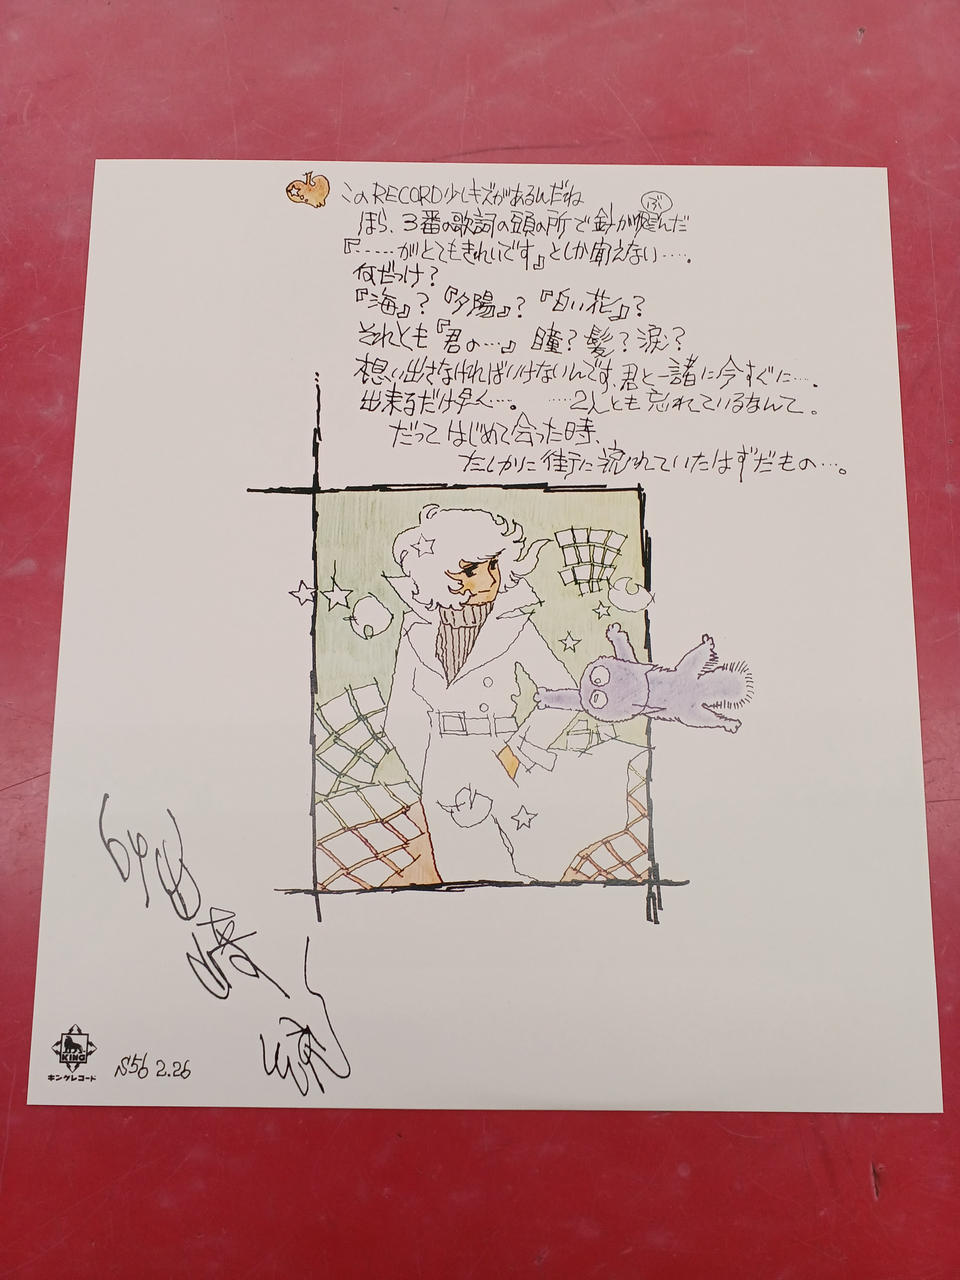 このRECORD少しキズがあるんだね
ぶ
ほら、3番の歌詞の頭の所で針が飛んだ
『‥‥‥がとてもきれいです』としか聞えない‥‥.
何だっけ?
『海』?『夕陽』?『白い花』?
それとも『君の‥‥』 瞳?髪?涙?
想い出さなければいけないんです、君と一諸に今すぐに‥‥.
出来るだけ早く‥‥。 ‥‥‥2人とも忘れているなんて。
だってはじめて会った時、
たしかに街に流れていたはずだもの‥‥。
KING
キングレコード
S56 2.26